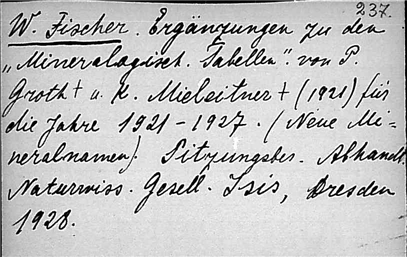 237.
W. Fischer. Ergänzungen zu den
„Mineralogisch. Tabellen". von P.
Groth † u. K. Mieleitner † (1921) für
die Jahre 1921-1927. (Neue Mi-
neralnamen). Sitzungsber. Abhandl.
Naturwiss. Gesell. Isis, Dresden
1928.